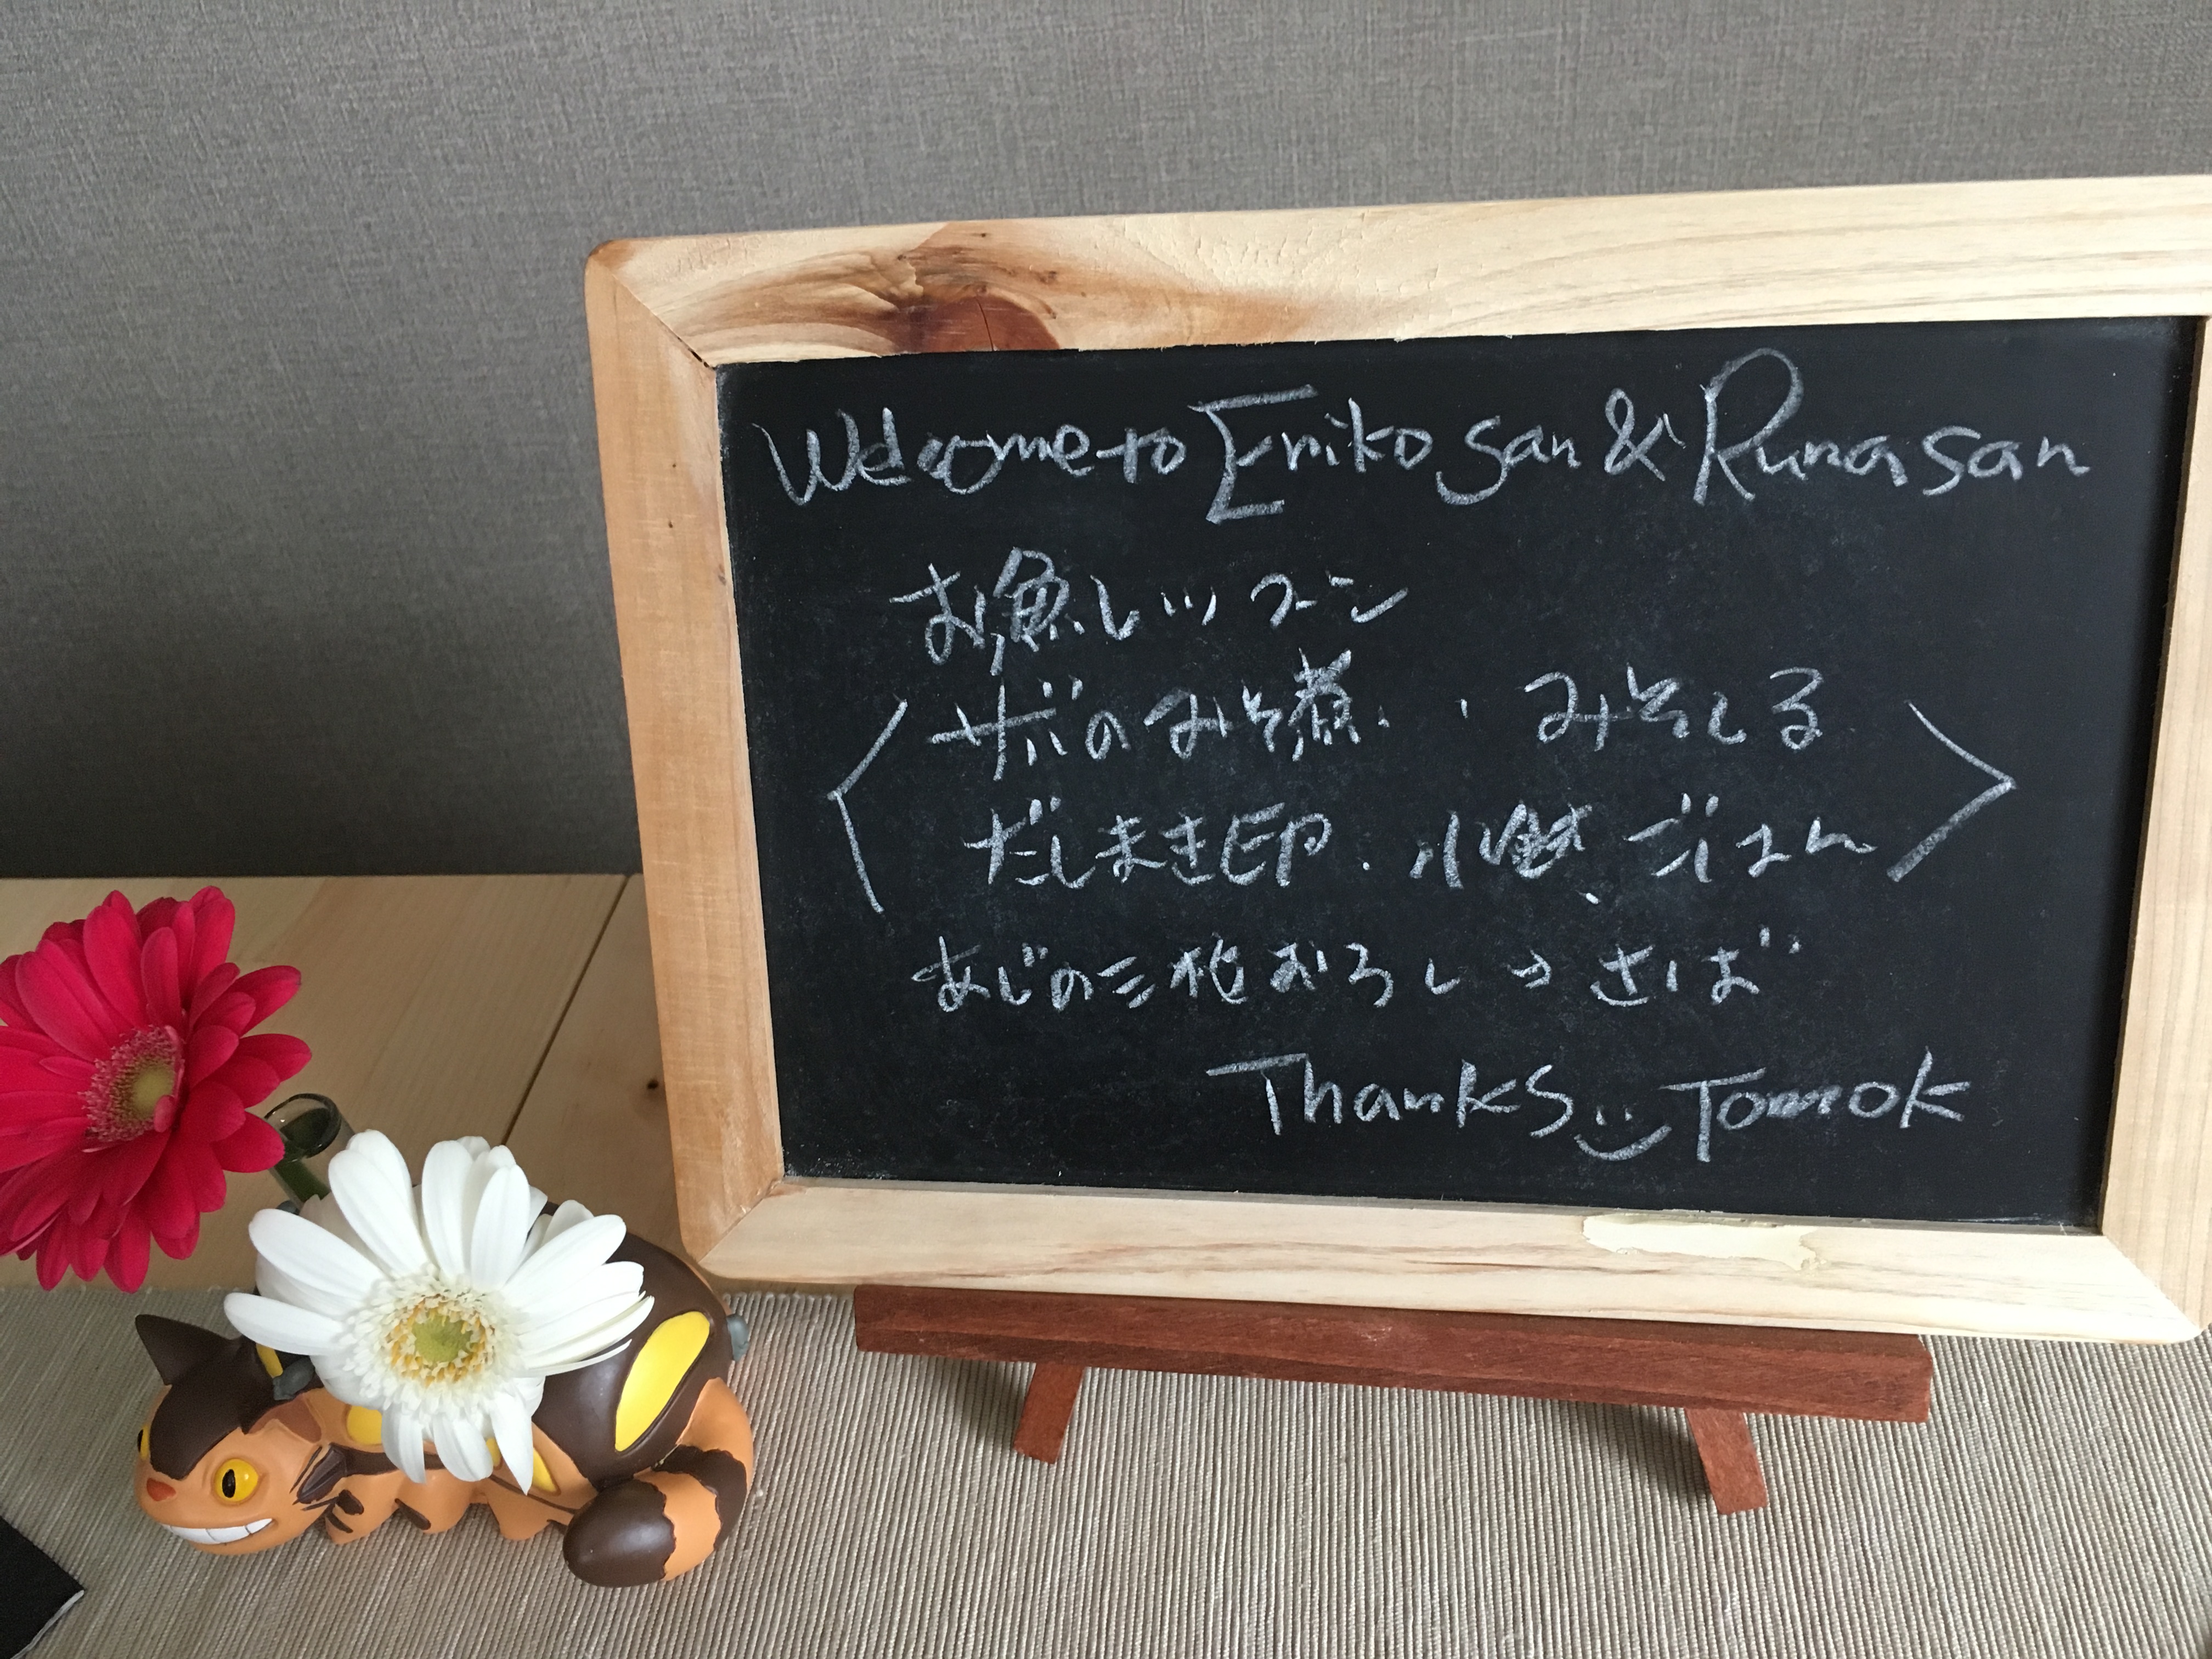 Welcome to Eriko san & Runa san
お魚レッスン
サバのみそ煮、みそしる
だしまき卵、小鉢、ごはん
あじの三枚おろし→さば
Thanks Tomok